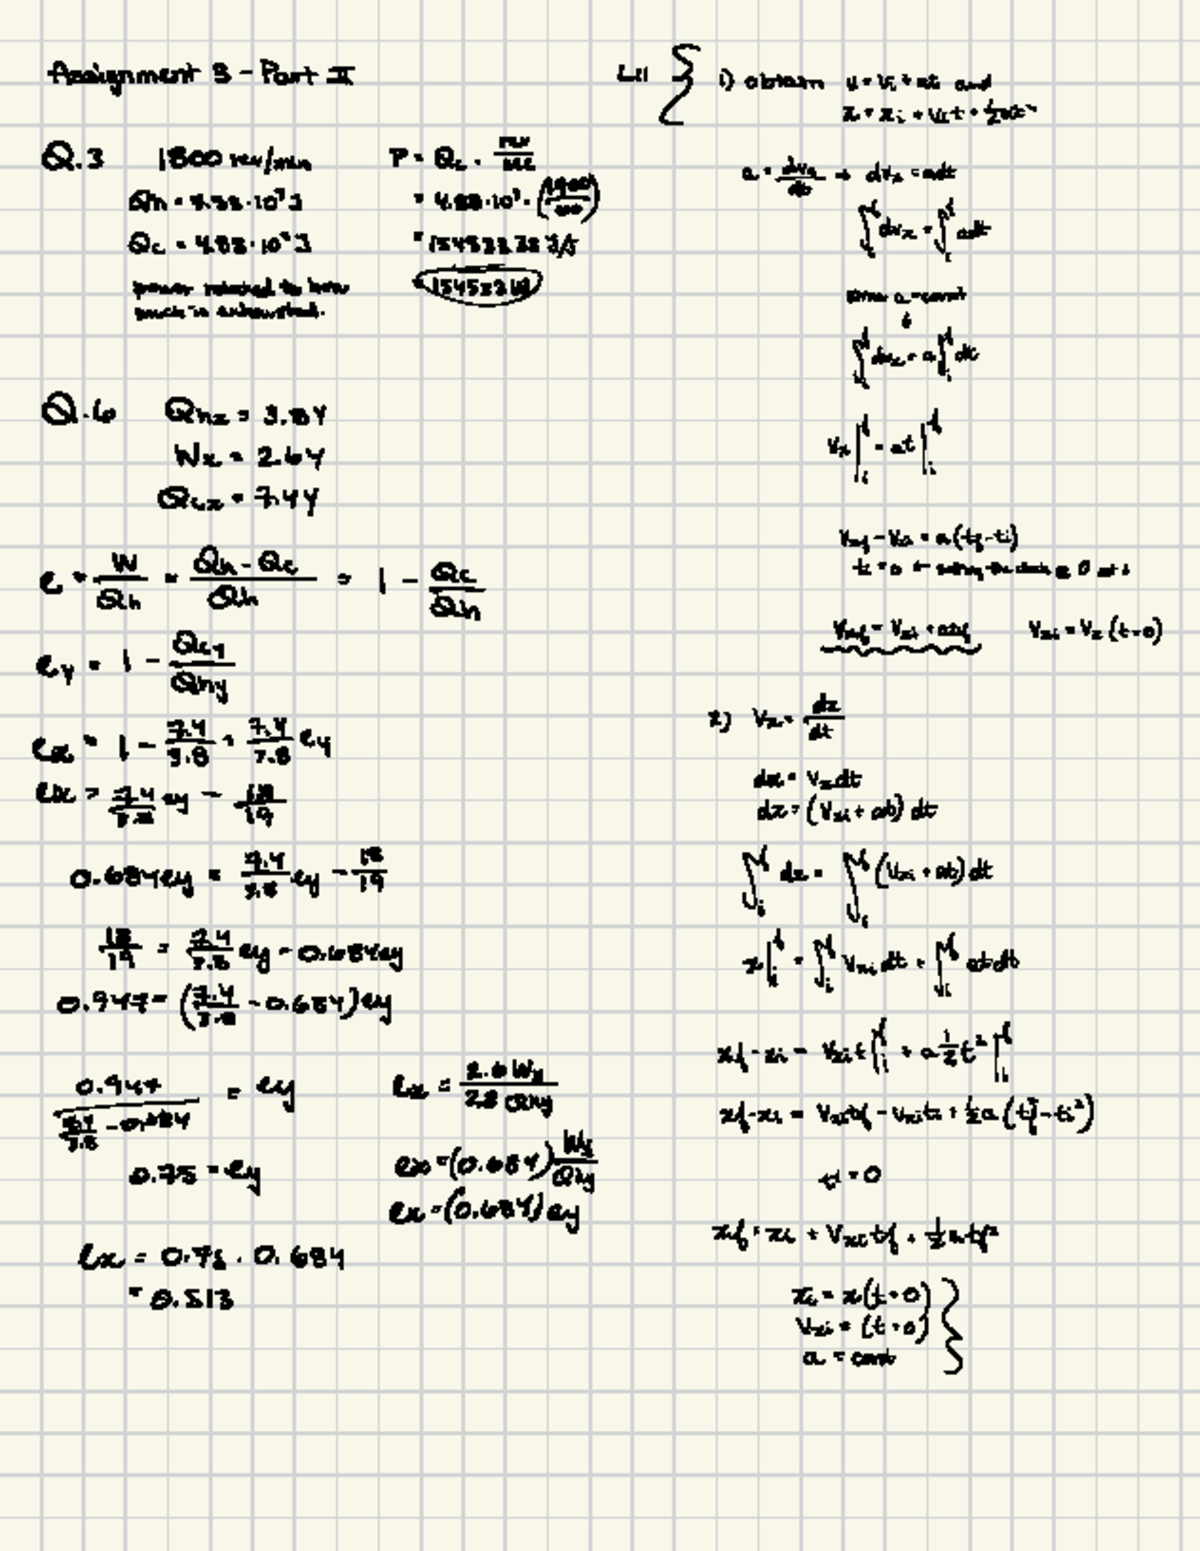 Assignment 3 - Part II
Q.3 1800 rev/min
P = Qc · rev/sec
Qc = 4.88·10³J
power related to how
much is exhausted.
Q.6 Qhx = 3.8Y
Wx = 2.6Y
Qcx = 7.4Y
e = W/Qh = Qh - Qc/Qh = 1 - Qc/Qh
ey = 1 - Qcy/Qhy
ex = 1 - 7.4/3.8 + 7.4/3.8 ey
ex = 7.4/3.8 ey - 18/19
0.684ey = 7.4/3.8 ey - 18/19
18/19 = 7.4/3.8 ey - 0.684ey
0.947 = (7.4/3.8 - 0.684)ey
0.947/7.4/3.8 - 0.684 = ey
0.75 = ey
ex = 2.6 Wy/3.8 Qhy
ex = (0.684) Wy/Qhy
ex = (0.684) ey
ex = 0.75 · 0.684
= 0.513
1) obtain v = vi + at and
x = xi + vit + ½at²
a = dvx/dt → dvx = adt
∫ᵢᶠ dvx = ∫ᵢᶠ adt
since a = const
↓
∫ᵢᶠ dvx = a∫ᵢᶠ dt
Vx|ᵢᶠ = at|ᵢᶠ
Vxf - Vxi = a(tf - ti)
Vxf = Vxi + atf Vxi = Vx (t=0)
2) Vx = dx/dt
dx = Vxdt
dx = (Vxi + at) dt
∫ᵢᶠ dx = ∫ᵢᶠ (Vxi + at) dt
x|ᵢᶠ = ∫ᵢᶠ Vxi dt + ∫ᵢᶠ atdt
xf - xi = Vxi t|ᵢᶠ + a½t²|ᵢᶠ
xf - xi = Vxitf - Vxiti + ½a(tf² - ti²)
ti = 0
xf = xi + Vxi tf + ½atf²
xi = x(t=0)
Vxi = (t=0)
a = const